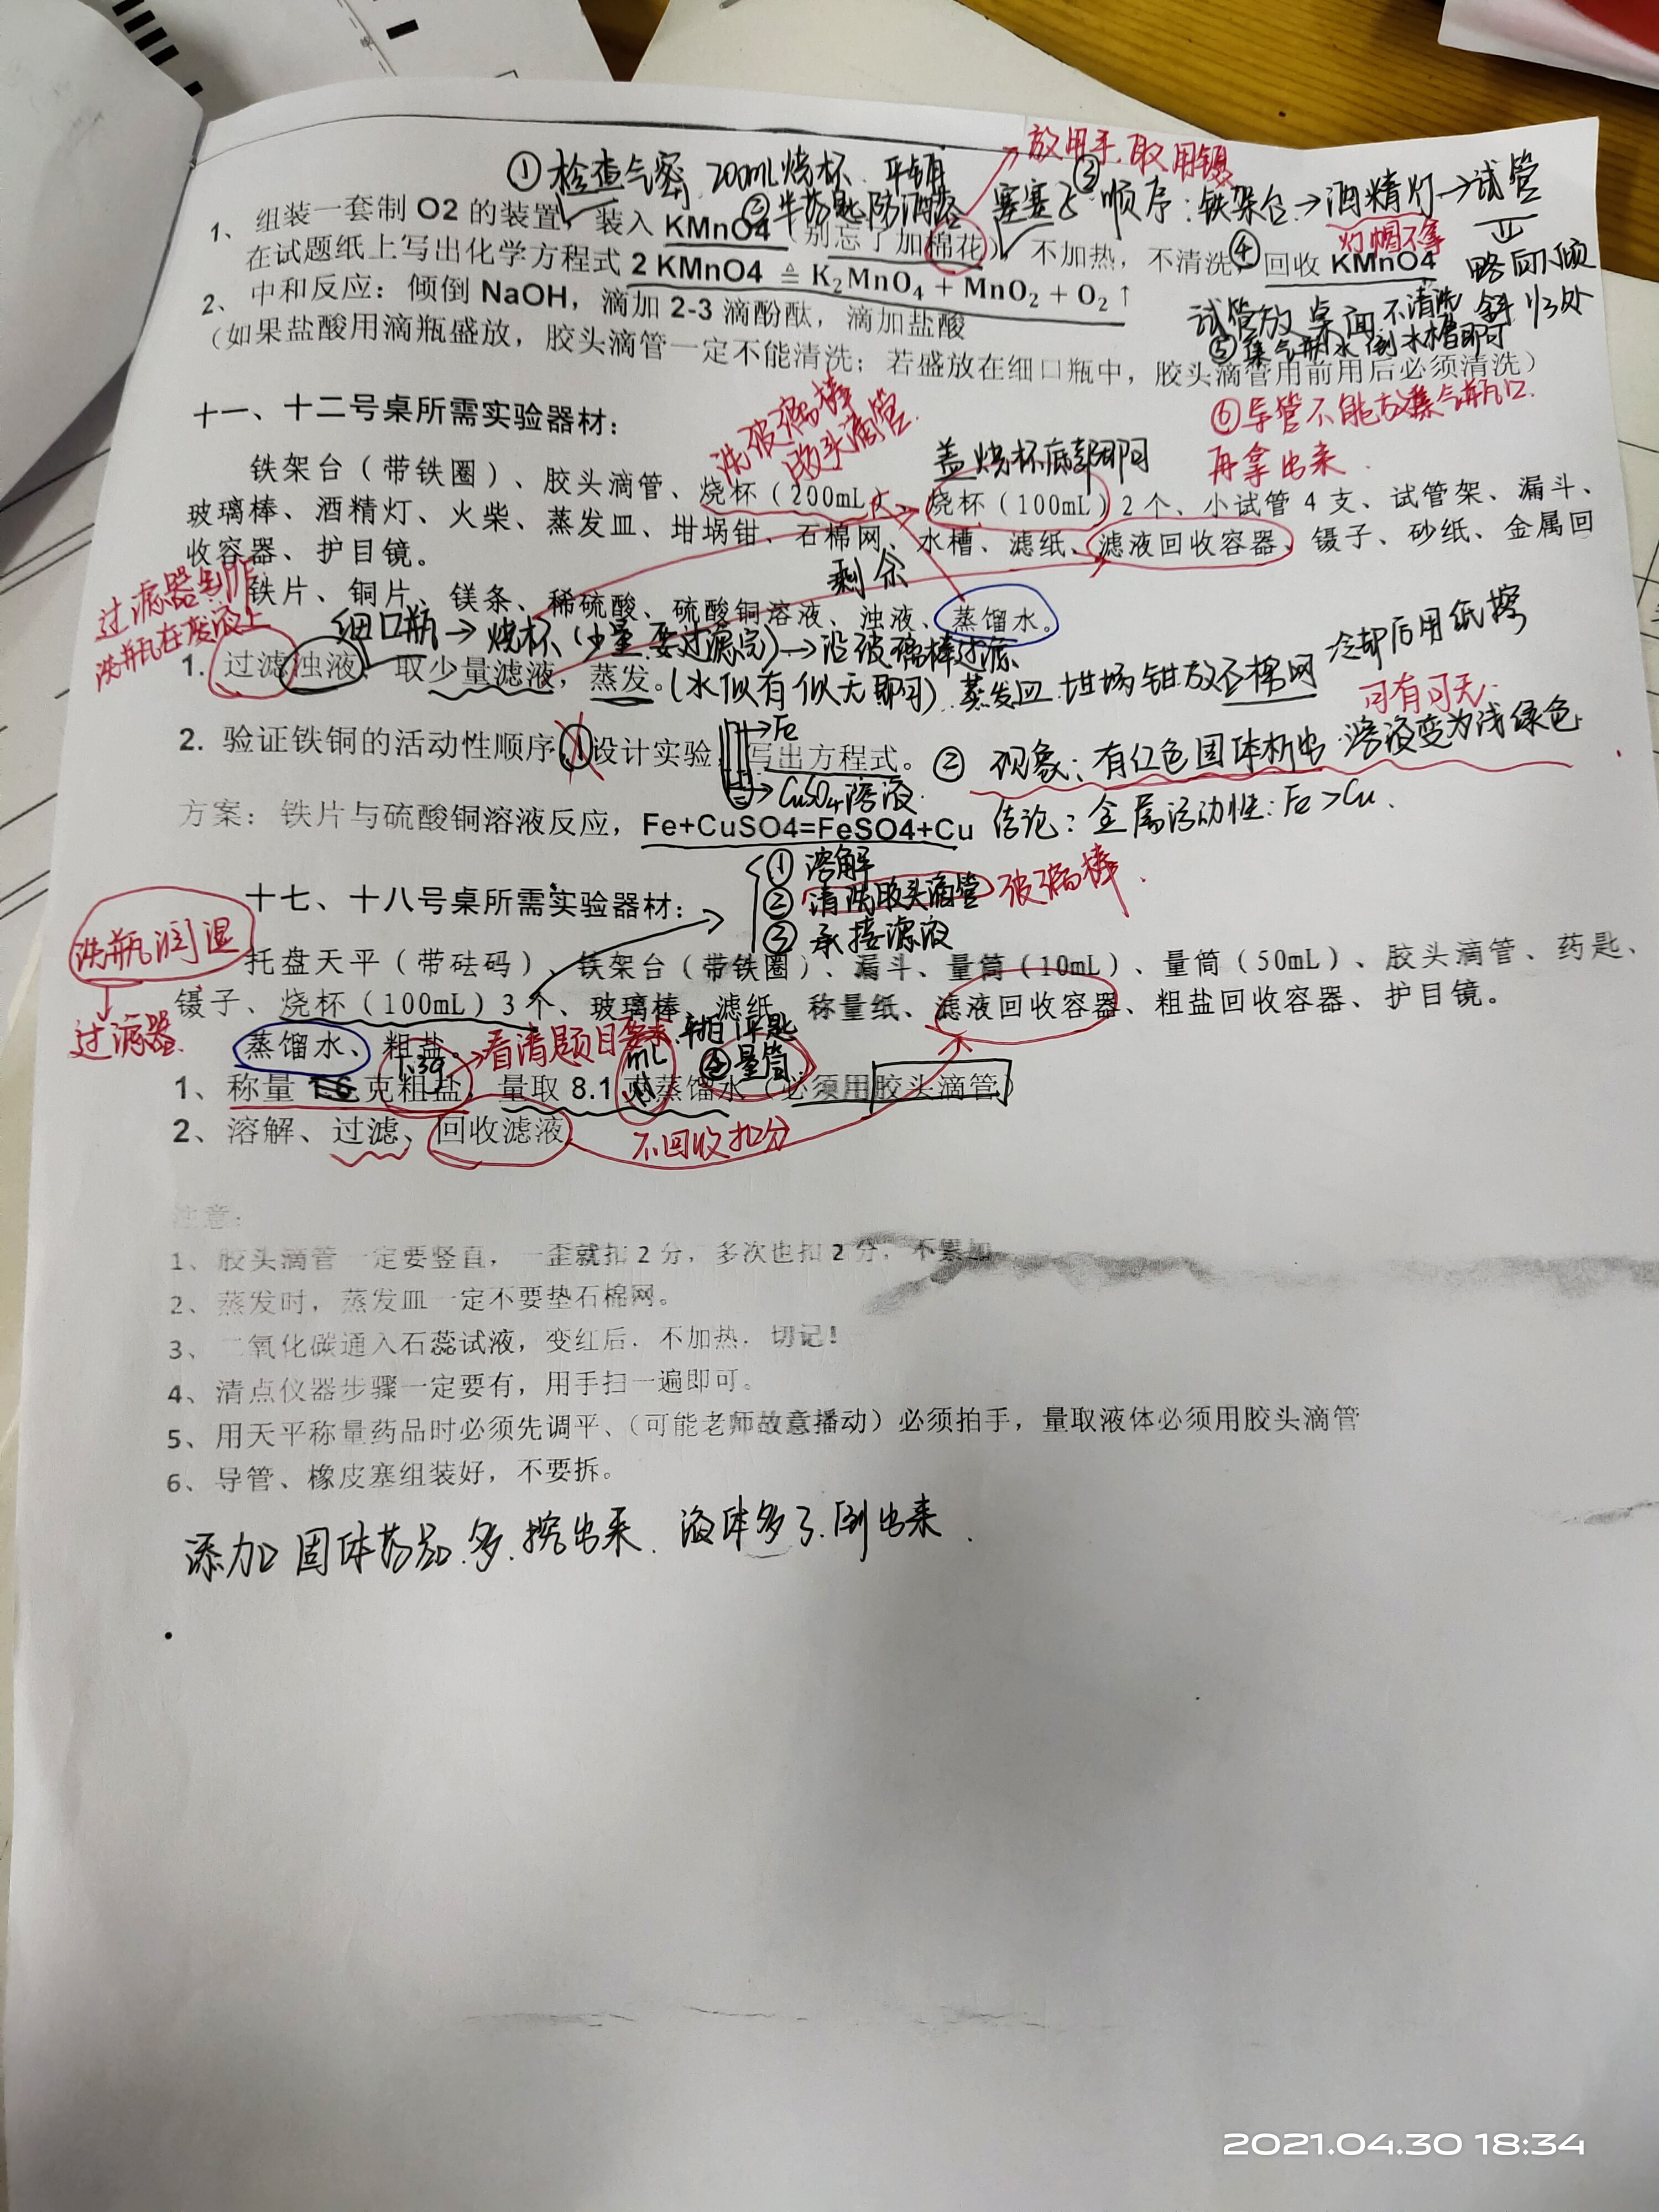 放用手.取用镊
①检查气密 200mL烧杯.平铺
②半药匙防洒落
③
塞塞飞 顺序:铁架台→酒精灯→试管
1、组装一套制O2的装置,装入KMnO4(别忘了加棉花),不加热,不清洗,④回收KMnO4
灯帽不拿
略向下倾斜 1/3处
在试题纸上写出化学方程式 2 KMnO4 ≜ K₂MnO₄ + MnO₂ + O₂ ↑
试管放桌面不清洗
2、中和反应:倾倒NaOH,滴加2-3滴酚酞,滴加盐酸
⑤集气瓶水倒水槽即可
(如果盐酸用滴瓶盛放,胶头滴管一定不能清洗;若盛放在细口瓶中,胶头滴管用前用后必须清洗)
⑥导管不能放集气瓶口
再拿出来.
十一、十二号桌所需实验器材:
洗玻璃棒
胶头滴管.
盖烧杯底部即可
铁架台(带铁圈)、胶头滴管、烧杯(200mL)、烧杯(100mL)2个、小试管4支、试管架、漏斗、
玻璃棒、酒精灯、火柴、蒸发皿、坩埚钳、石棉网、水槽、滤纸、滤液回收容器、镊子、砂纸、金属回
收容器、护目镜。
剩余
铁片、铜片、镁条、稀硫酸、硫酸铜溶液、浊液、蒸馏水。
过滤器制作
洗瓶在废液上
细口瓶→烧杯(少量 要过滤完)→沿玻璃棒过滤
1. 过滤浊液,取少量滤液,蒸发。(水似有似无即可).蒸发皿.坩埚钳放石棉网 冷却后用纸擦
可有可无.
→Fe
2. 验证铁铜的活动性顺序①设计实验,写出方程式。② 现象:有红色固体析出 溶液变为浅绿色
→CuSO4溶液.
方案:铁片与硫酸铜溶液反应,Fe+CuSO4=FeSO4+Cu 结论:金属活动性:Fe>Cu.
①溶解
②清洗胶头滴管 玻璃棒.
③承接滤液
十七、十八号桌所需实验器材:
洗瓶润湿
↓
过滤器.
托盘天平(带砝码)、铁架台(带铁圈)、漏斗、量筒(10mL)、量筒(50mL)、胶头滴管、药匙、
镊子、烧杯(100mL)3个、玻璃棒、滤纸、称量纸、滤液回收容器、粗盐回收容器、护目镜。
蒸馏水、粗盐。
→看清题目要求
②量筒
1、称量1.6克粗盐,量取8.1克蒸馏水(必须用胶头滴管)
1.3g
mL
2、溶解、过滤、回收滤液
不回收扣分
注意:
1、胶头滴管一定要竖直,一歪就扣2分,多次也扣2分,不累加
2、蒸发时,蒸发皿一定不要垫石棉网。
3、二氧化碳通入石蕊试液,变红后.不加热.切记!
4、清点仪器步骤一定要有,用手扫一遍即可。
5、用天平称量药品时必须先调平、(可能老师故意播动)必须拍手,量取液体必须用胶头滴管
6、导管、橡皮塞组装好,不要拆。
添加固体药品.多.挖出来.液体多了.倒出来.
2021.04.30 18:34